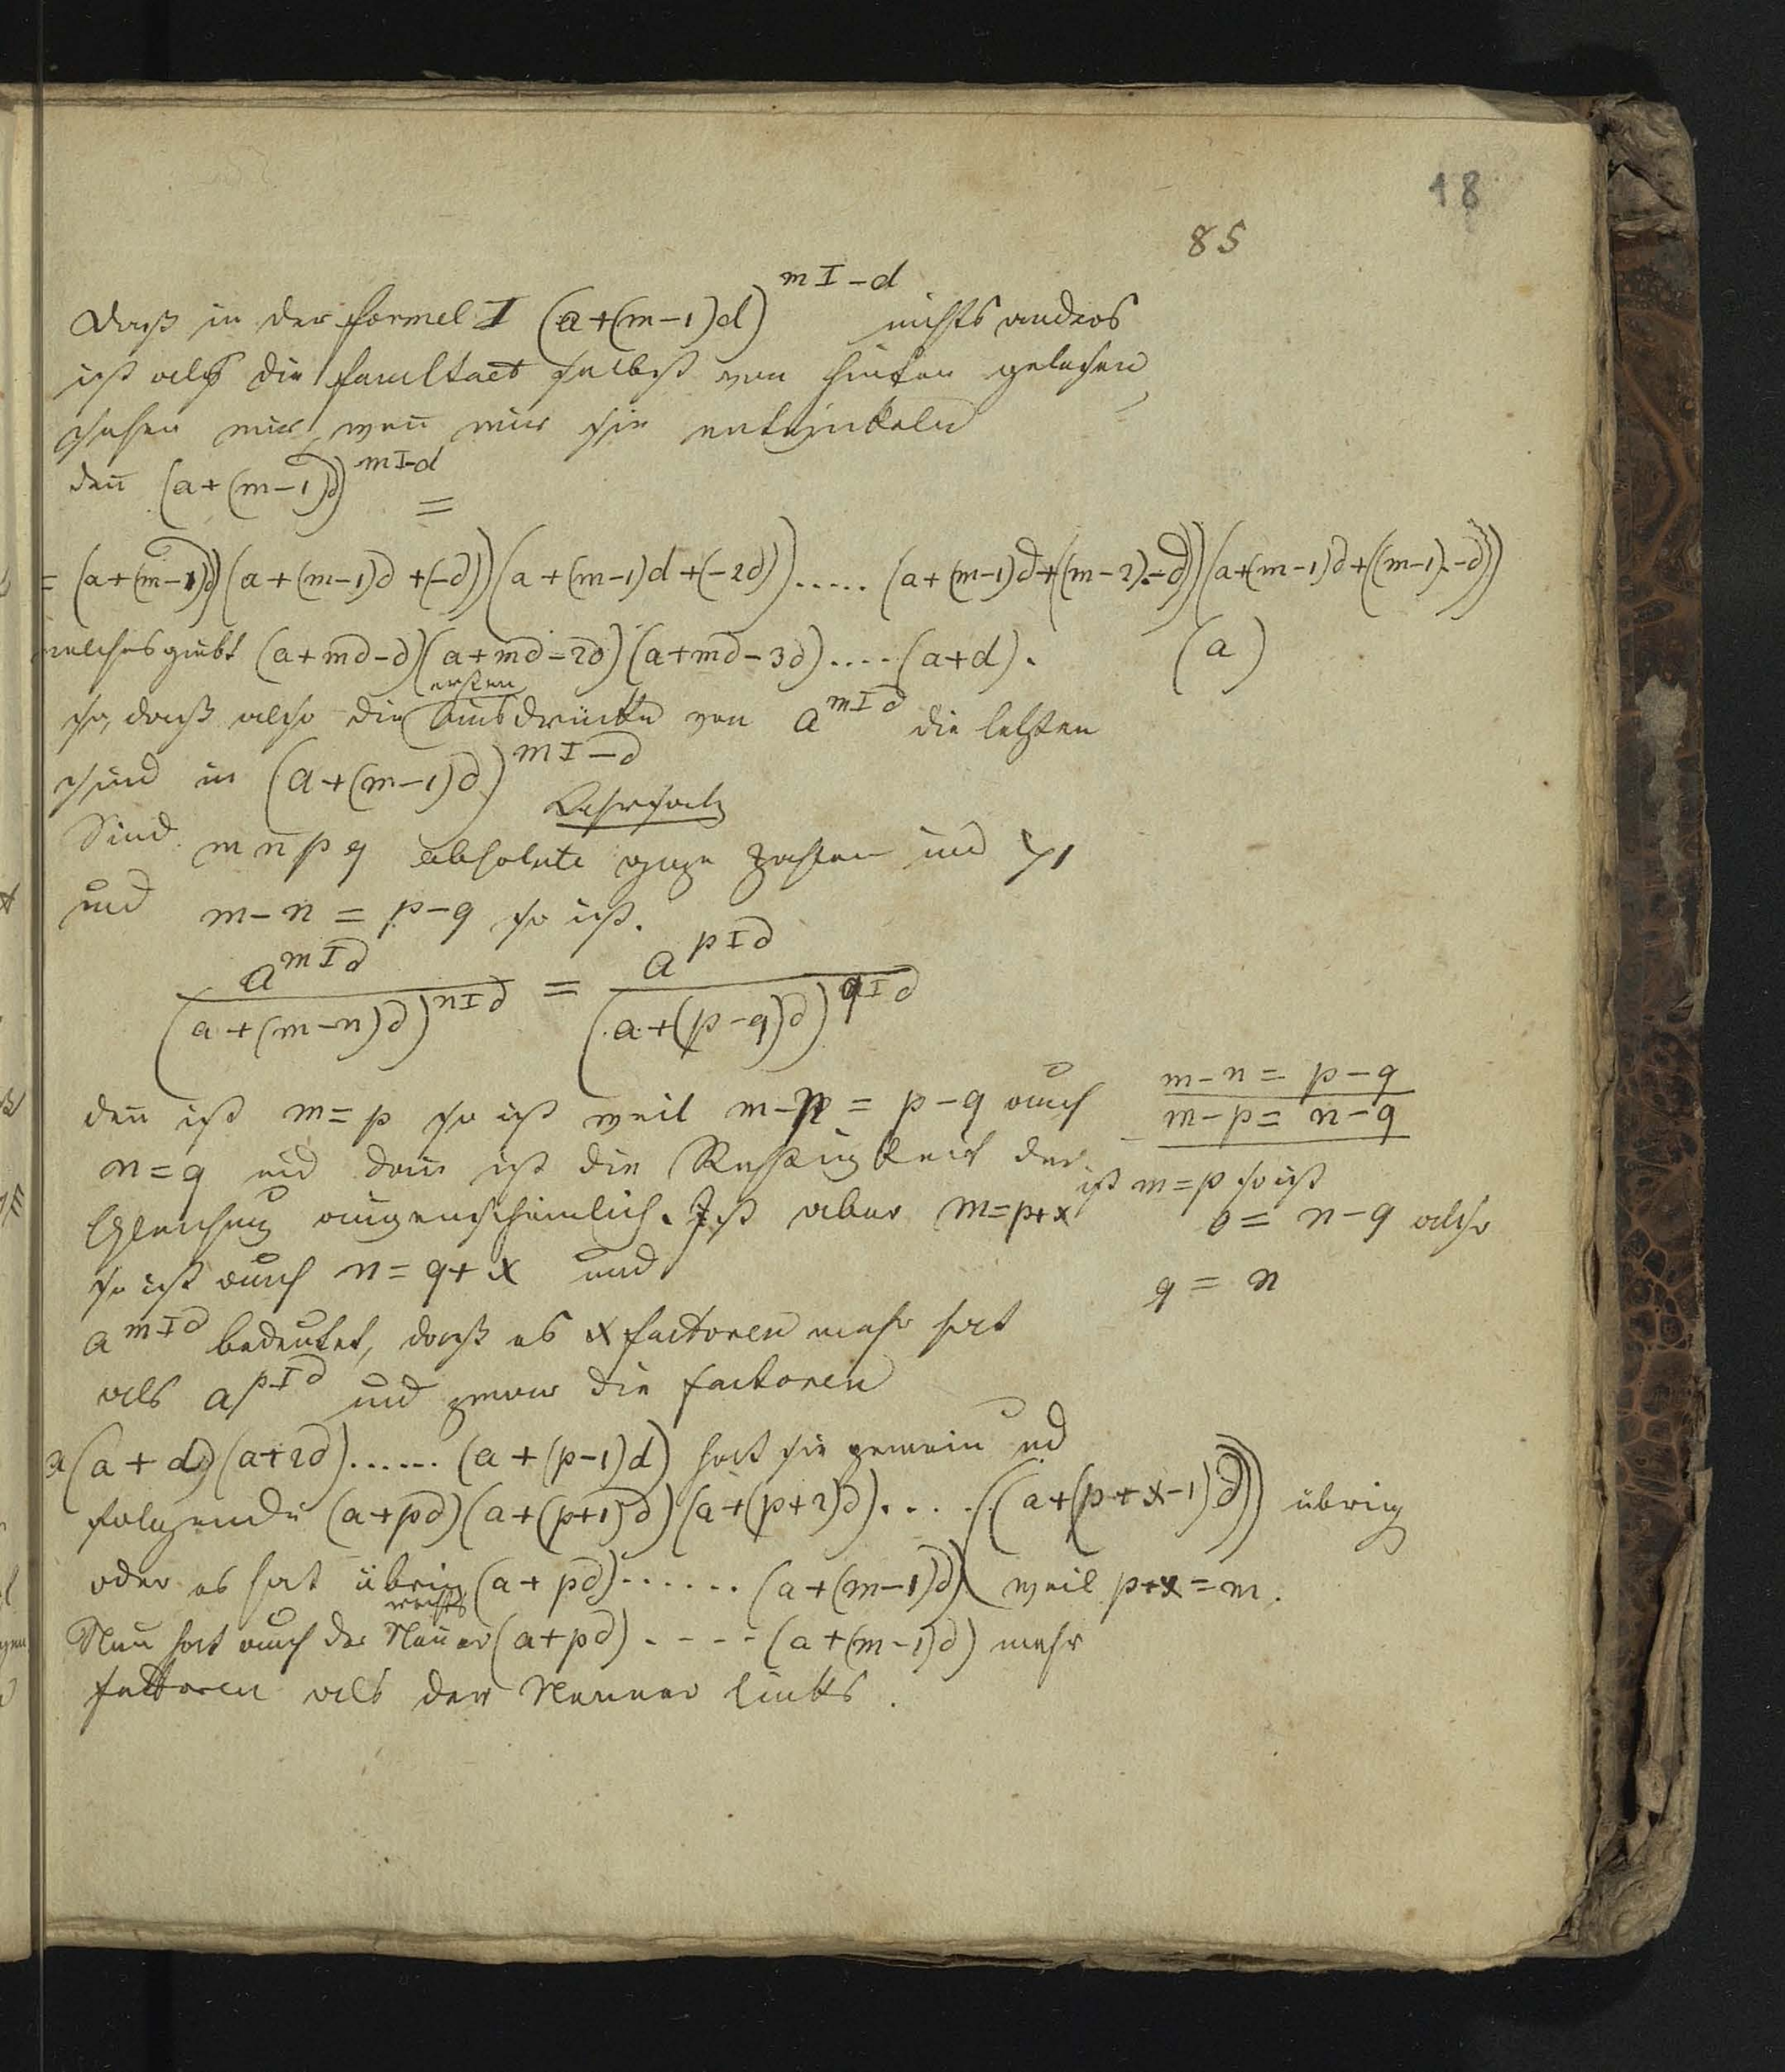 18
85
Daß in der Formel I (a+(m-1)d)^{mI-d} nichts anders
ist als die Facultaet selbst von hinten gelesen,
sehen wir, weñ wir sie entwickeln
deñ (a+(m-1)d)^{mI-d} =
= (a+(m-1)d)(a+(m-1)d+(-d))(a+(m-1)d+(-2d))..... (a+(m-1)d+((m-2).-d))(a+(m-1)d+((m-1).-d))
welches giebt (a+md-d)(a+md-2d)(a+md-3d)....(a+d). (a)
ersten
so, daß also die Ausdrücke von a^{mId} die letzten
sind in (a+(m-1)d)^{mI-d}
Lehrsatz
Sind m n p q absolute gaze Zahlen und >1
und m-n = p-q so ist.
a^{mId} / (a+(m-n)d)^{nId} = a^{pId} / (a+(p-q)d)^{qId}
deñ ist m=p so ist weil m-n = p-q auch
n=q und dañ ist die Richtigkeit der
Gleichung augenscheinlich. Ist aber m=p+x
so ist auch n=q+x und
m-n = p-q
m-p = n-q
ist m=p so ist
0 = n-q also
q = n
a^{mId} bedeutet, daß es x factoren mehr hat
als a^{pId} und zwar die factoren
a(a+d)(a+2d)......(a+(p-1)d) hat sie gemein und
folgende (a+pd)(a+(p+1)d)(a+(p+2)d).....((a+(p+x-1)d)) übrig
oder es hat übrig (a+pd)......(a+(m-1)d) weil p+x=m.
rechts
Nun hat auch der Neñer (a+pd)....(a+(m-1)d) mehr
factoren als der Nenner links.